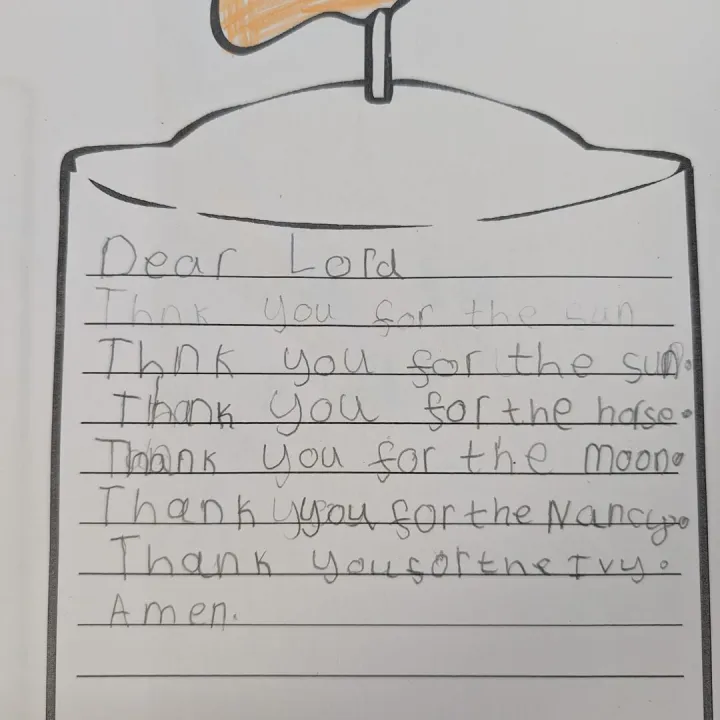 Dear Lord
Thnk you for the sun
Thnk you for the sun.
Thank you for the horse.
Thank you for the moon.
Thank you for the Nancy.
Thank you for the Ivy.
Amen.